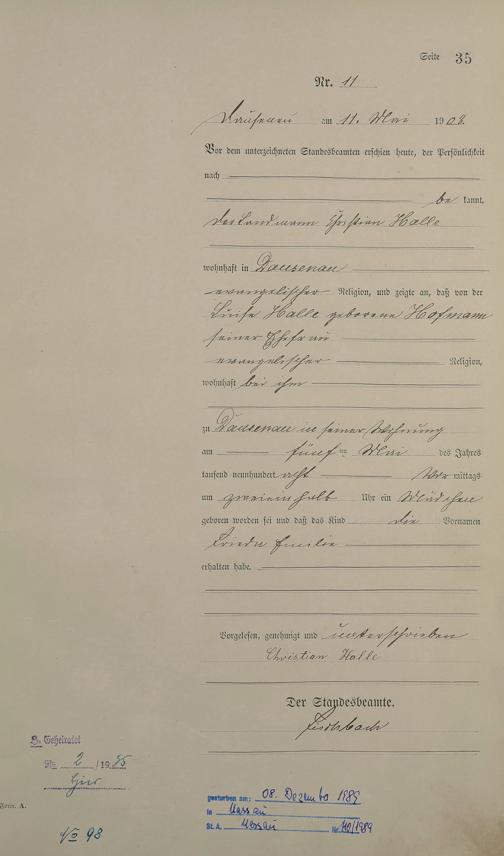 Seite 35
Nr. 11
Dausenau am 11. Mai 1908.
Vor dem unterzeichneten Standesbeamten erschien heute, der Persönlichkeit
nach
be kannt,
der Landmann Christian Halle
wohnhaft in Dausenau
evangelischer Religion, und zeigte an, daß von der
Luise Halle geborene Hofmann
seiner Ehefrau
evangelischer Religion,
wohnhaft bei ihm
zu Dausenau in seiner Wohnung
am fünften Mai des Jahres
tausend neunhundert acht Vor mittags
um zweieinhalb Uhr ein Mädchen
geboren worden sei und daß das Kind die Vornamen
Frieda Emilie
erhalten habe.
Vorgelesen, genehmigt und unterschrieben
Christian Halle
Der Standesbeamte.
Geheiratet
Nr. 2 /19
hier
Form. A.
gestorben am: 08. Dezember 1989
in Nassau
St. A. Nassau Nr. /1989